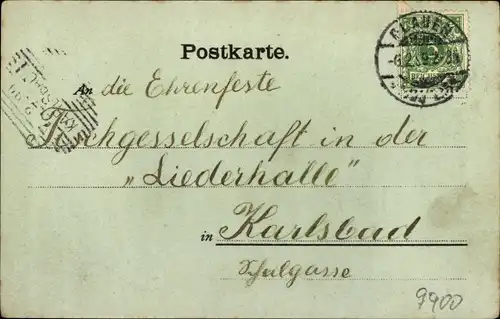 Postkarte.
PLAUEN
An die Ehrenfeste
Tischgesselschaft in der
„Liederhalle"
in Karlsbad
Schulgasse
9900